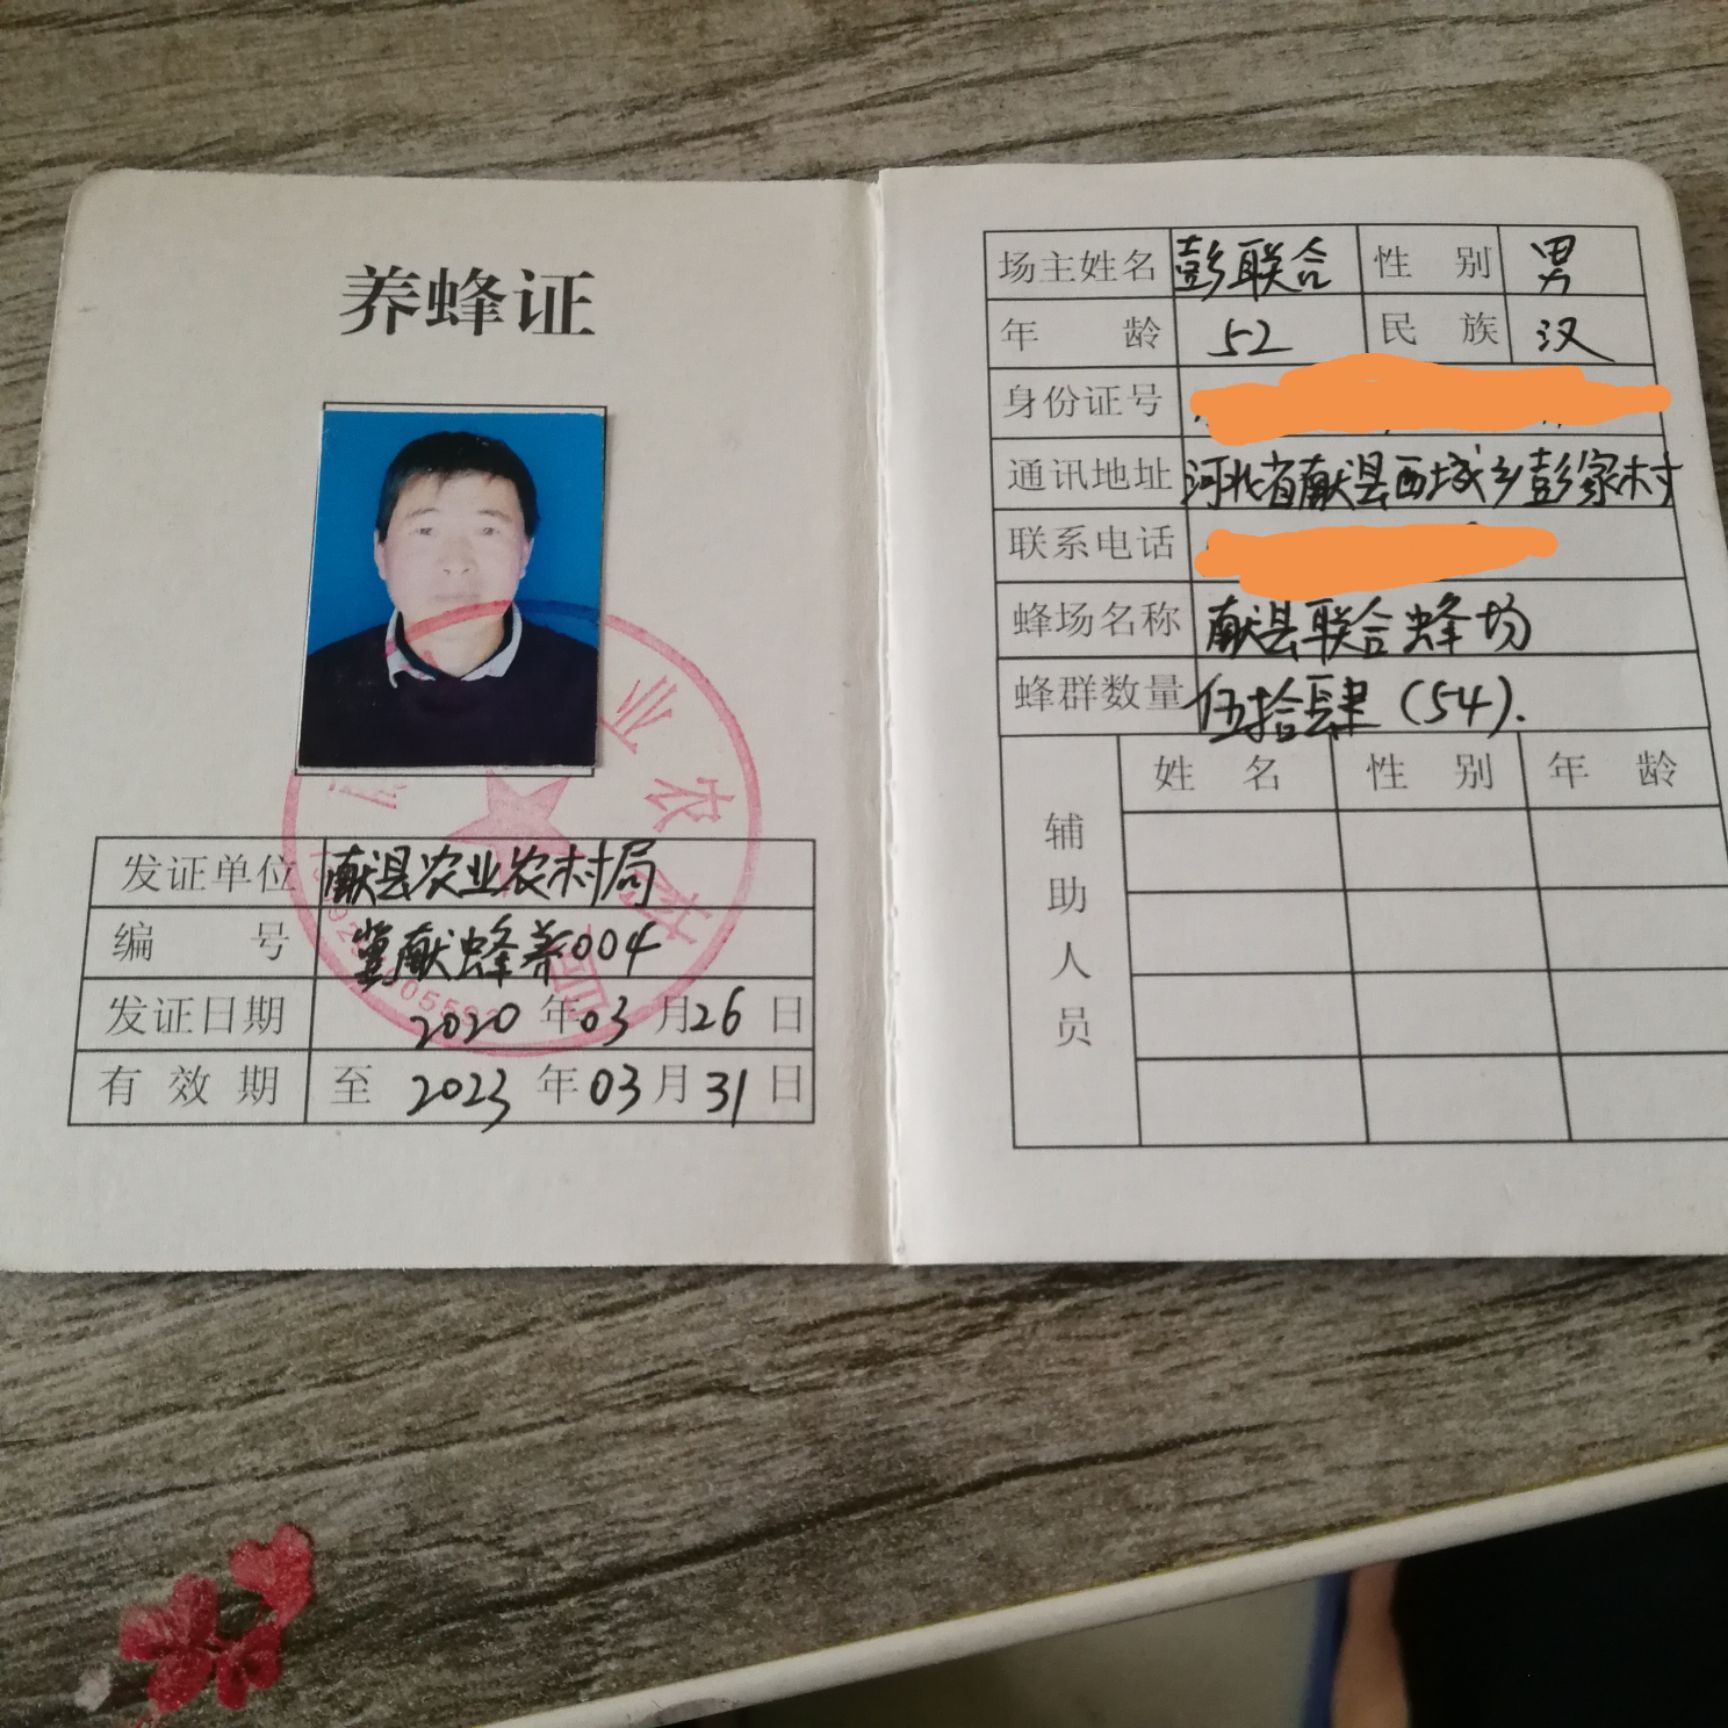 养蜂证
发证单位 献县农业农村局
编号 冀献蜂养004
发证日期 2020年03月26日
有效期 至2023年03月31日
场主姓名 彭联合 性别 男
年龄 52 民族 汉
身份证号
通讯地址 河北省献县西城乡彭家村
联系电话
蜂场名称 献县联合蜂场
蜂群数量 伍拾肆(54).
辅助人员 姓名 性别 年龄